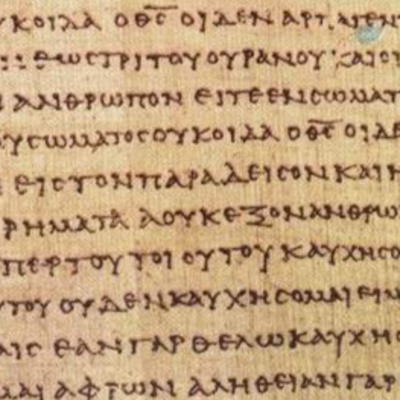 ΥΚΟΙΔΑ Ο Θ̅C̅ ΟΙΔΕΝ ΑΡΠΑΓΕΝ
ΕΩC ΤΡΙΤΟΥ ΟΥΡΑΝΟΥ ΚΑΙ ΟΙ
ΑΝΘΡΩΠΟΝ ΕΙΤΕ ΕΝ CΩΜΑΤ
ΟΥ CΩΜΑΤΟC ΟΥΚ ΟΙΔΑ Ο Θ̅C̅ ΟΙΔΕ
ΕΙC ΤΟΝ ΠΑΡΑΔΕΙCΟΝ ΚΑΙ Η
ΡΗΜΑΤΑ Α ΟΥΚ ΕΞΟΝ ΑΝΘΡΩ
ΠΕΡ ΤΟΥ ΤΟΙΟΥΤΟΥ ΚΑΥΧΗCΟ
ΥΤΟΥ ΟΥΔΕΝ ΚΑΥΧΗCΟΜΑΙ ΕΙ Μ
ΑΙC ΕΑΝ ΓΑΡ ΘΕΛΩ ΚΑΥΧΗC
ΜΑΙ ΑΦΡΩΝ ΑΛΗΘΕΙΑΝ ΓΑΡ